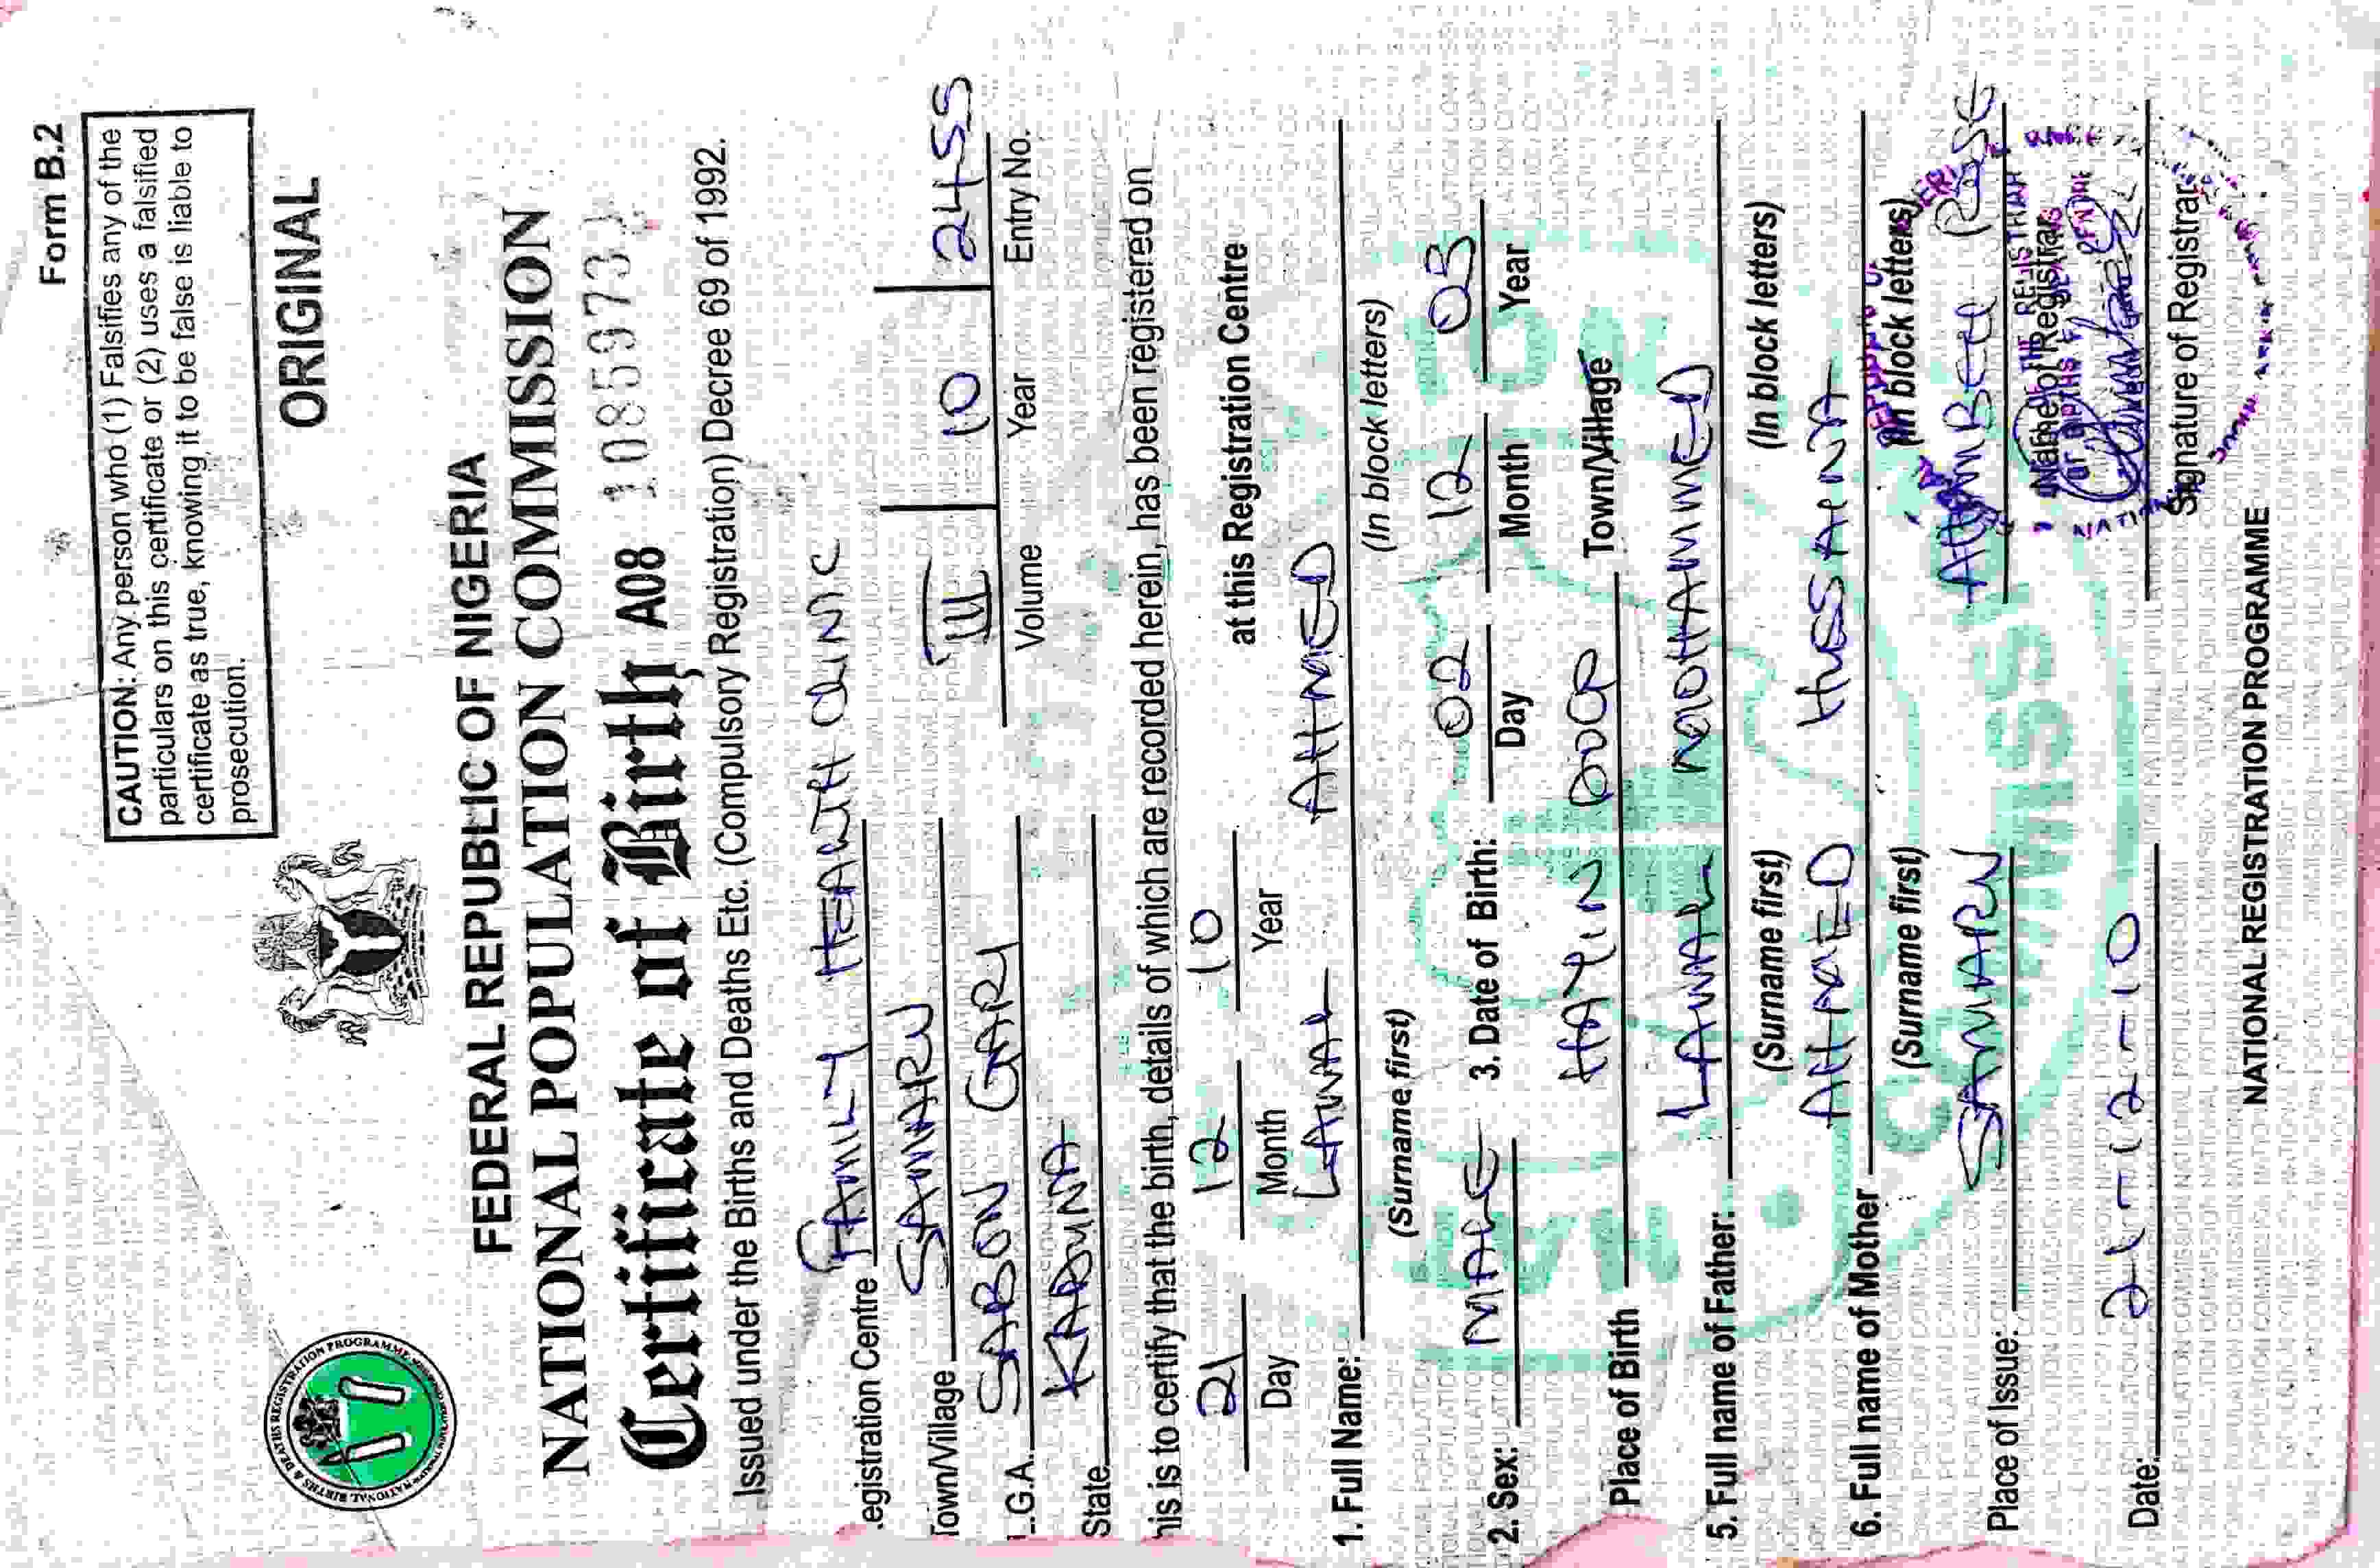 Form B.2
CAUTION: Any person who (1) Falsifies any of the
particulars on this certificate or (2) uses a falsified
certificate as true, knowing it to be false is liable to
prosecution.
ORIGINAL
FEDERAL REPUBLIC OF NIGERIA
NATIONAL POPULATION COMMISSION
Certificate of Birth A08 10859731
Issued under the Births and Deaths Etc. (Compulsory Registration) Decree 69 of 1992.
egistration Centre FAMILY HEALTH CLINIC
Town/Village SAMARU
L.G.A. SABON GARI
State KADUNA
III 10 2455
Volume Year Entry No.
his is to certify that the birth, details of which are recorded herein, has been registered on
21 12 10 at this Registration Centre
Day Month Year
1. Full Name: LAWAL AHMED
(Surname first) (In block letters)
2. Sex: MALE 3. Date of Birth: 02 12 03
Day Month Year
Place of Birth HAYIN DOGO Town/Village
5. Full name of Father: LAWAL MOHAMMED
(Surname first) (In block letters)
6. Full name of Mother AHMED HUSSAINA
(Surname first) (In block letters)
Place of Issue: SAMARU
Name of Registrar
Date: 21-12-10
Signature of Registrar
NATIONAL REGISTRATION PROGRAMME
COMMISSION